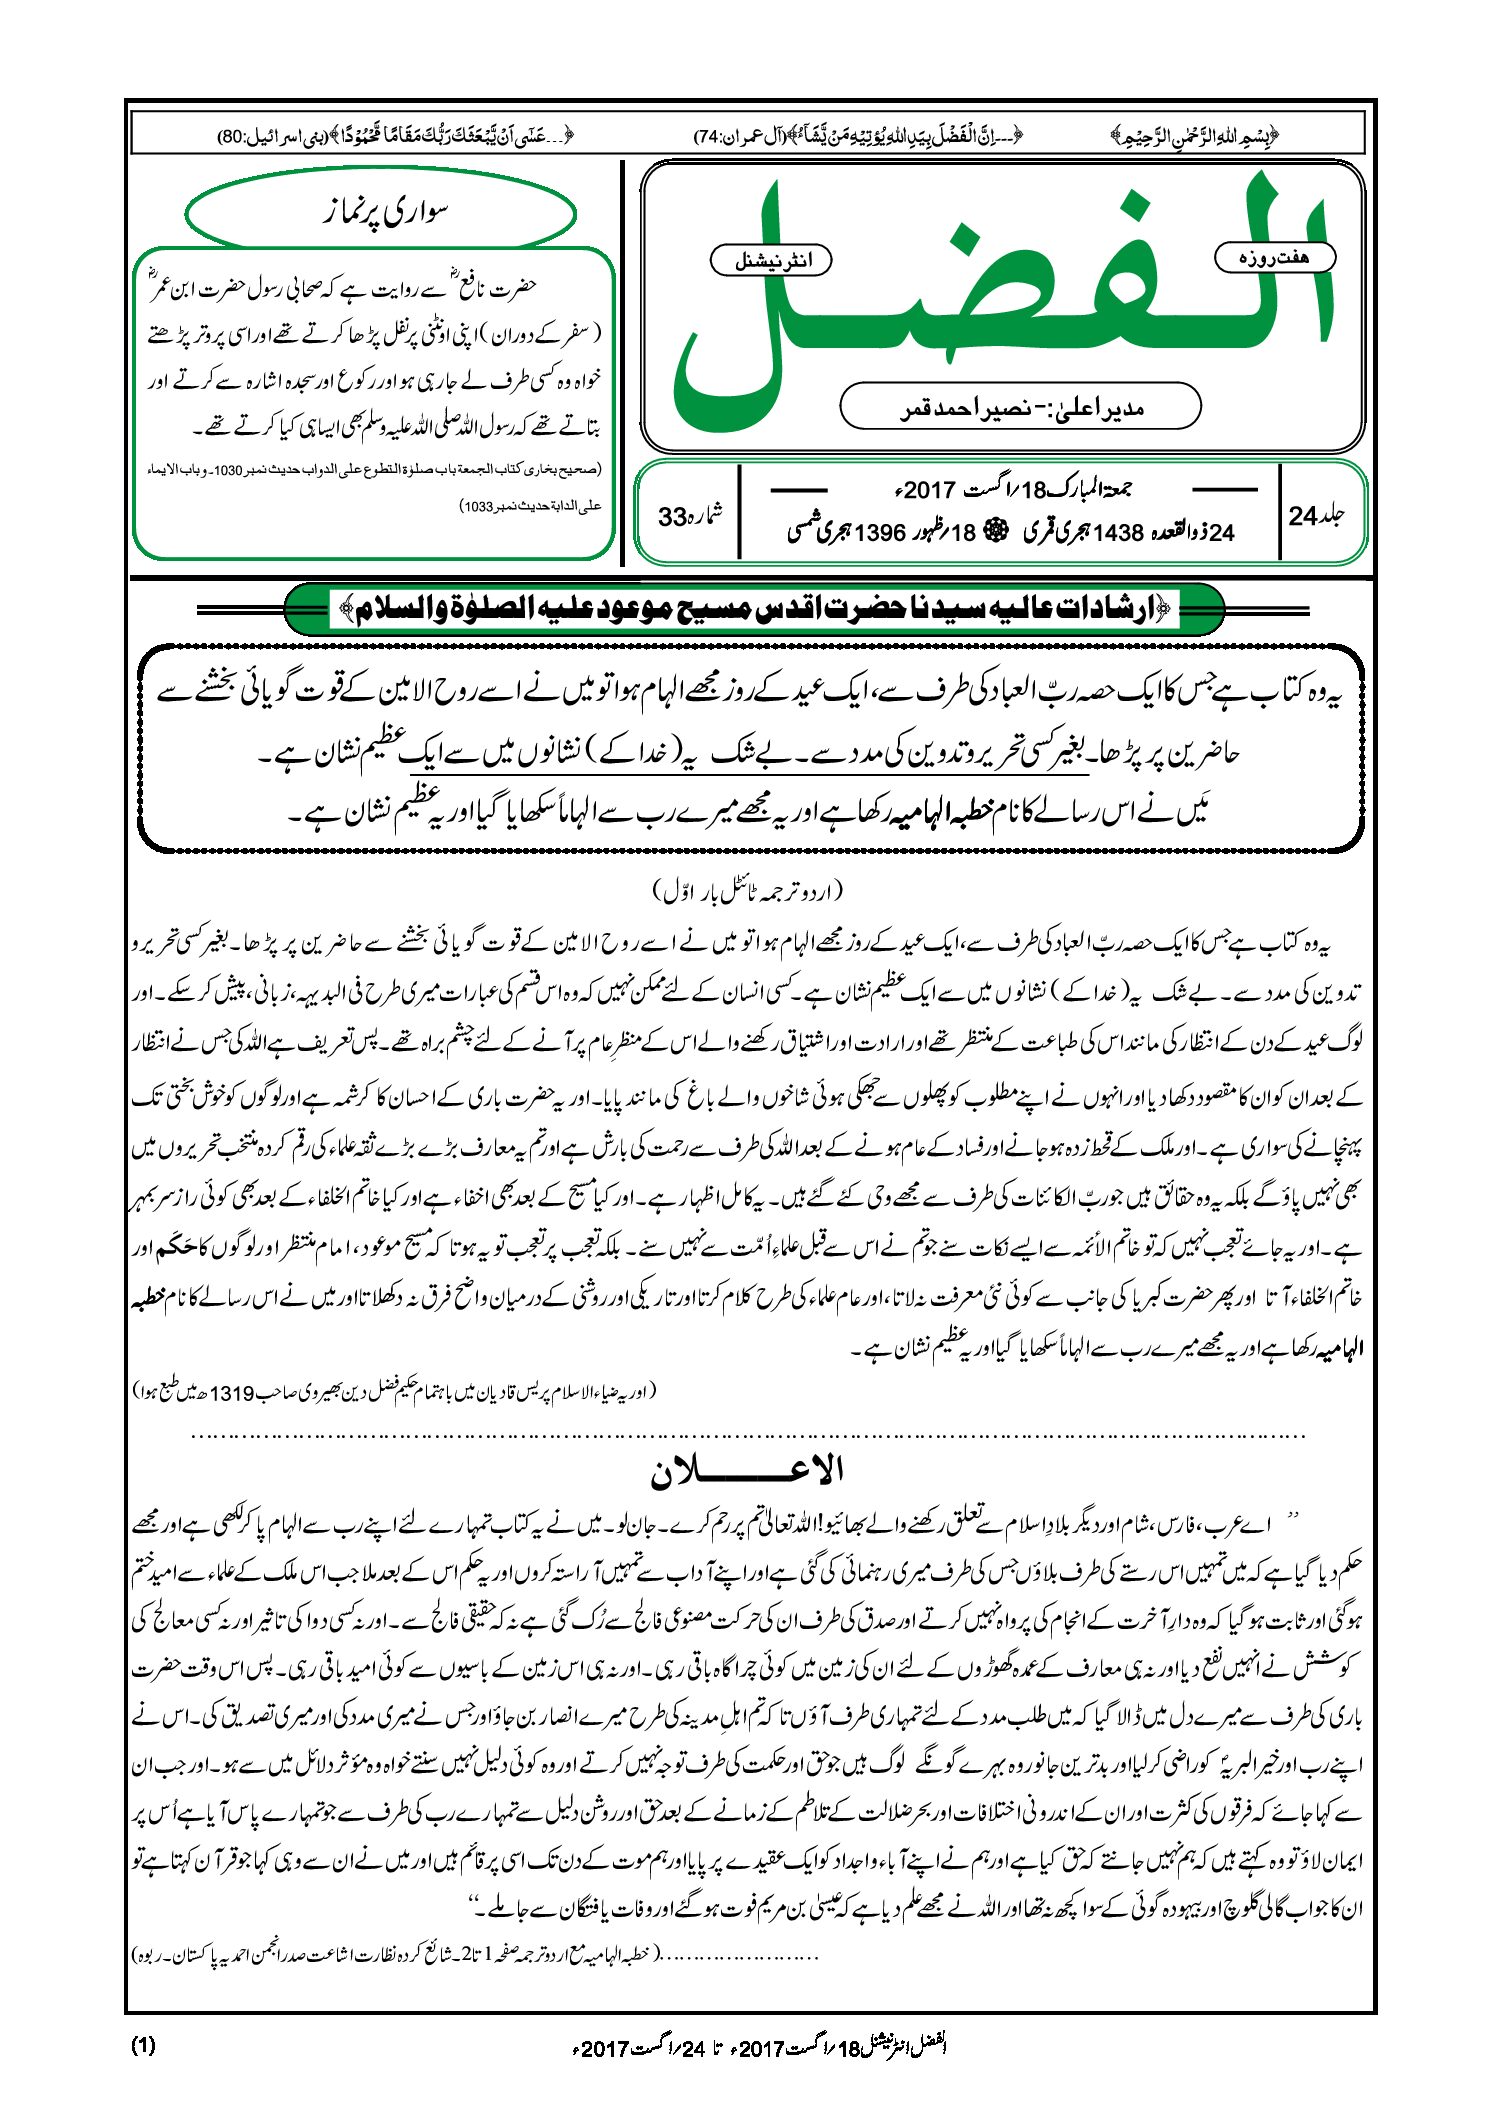 ﴿بِسْمِ اللہِ الرَّحْمٰنِ الرَّحِیْمِ﴾ ﴿۔۔۔اِنَّ الْفَضْلَ بِیَدِ اللہِ یُؤتِیْہِ مَنْ یَّشَآءُ﴾(آل عمران:74) ﴿۔۔۔عَسٰی اَنْ یَّبْعَثَکَ رَبُّکَ مَقَامًا مَّحْمُوْدًا﴾(بنی اسرائیل:80)
الفضل
ہفت روزہ
انٹرنیشنل
مدیر اعلیٰ:-نصیر احمد قمر
جلد 24
جمعۃ المبارک 18؍اگست 2017ء
24 ذوالقعدہ 1438 ہجری قمری 18؍ظہور 1396 ہجری شمسی
شمارہ 33
سواری پر نماز
حضرت نافعؓ سے روایت ہے کہ صحابی رسول حضرت ابن عمرؓ
(سفر کے دوران) اپنی اونٹنی پر نفل پڑھا کرتے تھے اور اسی پر وتر پڑھتے
خواہ وہ کسی طرف لے جا رہی ہو اور رکوع اور سجدہ اشارہ سے کرتے اور
بتاتے تھے کہ رسول اللہ صلی اللہ علیہ وسلم بھی ایسا ہی کیا کرتے تھے۔
(صحیح بخاری کتاب الجمعة باب صلوٰة التطوع علی الدواب حدیث نمبر 1030۔ و باب الایماء
علی الدابة حدیث نمبر 1033)
﴿ارشادات عالیہ سیدنا حضرت اقدس مسیح موعود علیہ الصلوٰۃ والسلام﴾
یہ وہ کتاب ہے جس کا ایک حصہ ربّ العباد کی طرف سے، ایک عید کے روز مجھے الہام ہوا تو میں نے اسے روح الامین کے قوت گویائی بخشنے سے
حاضرین پر پڑھا۔ بغیر کسی تحریر و تدوین کی مدد سے۔ بے شک یہ (خدا کے) نشانوں میں سے ایک عظیم نشان ہے۔
مَیں نے اس رسالے کا نام خطبہ الہامیہ رکھا ہے اور یہ مجھے میرے رب سے الہاماً سکھایا گیا اور یہ عظیم نشان ہے۔
(اردو ترجمہ ٹائٹل بار اوّل)
یہ وہ کتاب ہے جس کا ایک حصہ ربّ العباد کی طرف سے، ایک عید کے روز مجھے الہام ہوا تو میں نے اسے روح الامین کے قوت گویائی بخشنے سے حاضرین پر پڑھا۔ بغیر کسی تحریر و
تدوین کی مدد سے۔ بے شک یہ (خدا کے) نشانوں میں سے ایک عظیم نشان ہے۔ کسی انسان کے لئے ممکن نہیں کہ وہ اس قسم کی عبارات میری طرح فی البدیہہ، زبانی، پیش کر سکے۔ اور
لوگ عید کے دن کے انتظار کی مانند اس کی طباعت کے منتظر تھے اور ارادت اور اشتیاق رکھنے والے اس کے منظرِ عام پر آنے کے لئے چشم براہ تھے۔ پس تعریف ہے اللہ کی جس نے انتظار
کے بعد ان کو ان کا مقصود دکھا دیا اور انہوں نے اپنے مطلوب کو پھلوں سے جھکی ہوئی شاخوں والے باغ کی مانند پایا۔ اور یہ حضرت باری کے احسان کا کرشمہ ہے اور لوگوں کو خوش بختی تک
پہنچانے کی سواری ہے۔ اور ملک کے قحط زدہ ہو جانے اور فساد کے عام ہونے کے بعد اللہ کی طرف سے رحمت کی بارش ہے اور تم یہ معارف بڑے بڑے ثقہ علماء کی رقم کردہ منتخب تحریروں میں
بھی نہیں پاؤ گے بلکہ یہ وہ حقائق ہیں جو ربّ الکائنات کی طرف سے مجھے وحی کئے گئے ہیں۔ یہ کامل اظہار ہے۔ اور کیا مسیح کے بعد بھی اخفاء ہے اور کیا خاتم الخلفاء کے بعد بھی کوئی راز سربمہر
ہے۔ اور یہ جائے تعجب نہیں کہ تو خاتم الأئمہ سے ایسے نکات سنے جو تم نے اس سے قبل علماءِ اُمّت سے نہیں سنے۔ بلکہ تعجب پر تعجب تو یہ ہوتا کہ مسیح موعود، امام منتظر اور لوگوں کا حَکَم اور
خاتم الخلفاء آتا اور پھر حضرت کبریا کی جانب سے کوئی نئی معرفت نہ لاتا، اور عام علماء کی طرح کلام کرتا اور تاریکی اور روشنی کے درمیان واضح فرق نہ دکھلاتا اور میں نے اس رسالے کا نام خطبہ
الہامیہ رکھا ہے اور یہ مجھے میرے رب سے الہاماً سکھایا گیا اور یہ عظیم نشان ہے۔
(اور یہ ضیاء الاسلام پریس قادیان میں باہتمام حکیم فضل دین بھیروی صاحب 1319ھ میں طبع ہوا)
الاعـــلان
’’ اے عرب، فارس، شام اور دیگر بلادِ اسلام سے تعلق رکھنے والے بھائیو! اللہ تعالیٰ تم پر رحم کرے۔ جان لو۔ میں نے یہ کتاب تمہارے لئے اپنے رب سے الہام پا کر لکھی ہے اور مجھے
حکم دیا گیا ہے کہ میں تمہیں اس رستے کی طرف بلاؤں جس کی طرف میری رہنمائی کی گئی ہے اور اپنے آداب سے تمہیں آراستہ کروں اور یہ حکم اس کے بعد ملا جب اس ملک کے علماء سے امید ختم
ہو گئی اور ثابت ہو گیا کہ وہ دارِ آخرت کے انجام کی پرواہ نہیں کرتے اور صدق کی طرف ان کی حرکت مصنوعی فالج سے رُک گئی ہے نہ کہ حقیقی فالج سے۔ اور نہ کسی دوا کی تاثیر اور نہ کسی معالج کی
کوشش نے انہیں نفع دیا اور نہ ہی معارف کے عمدہ گھوڑوں کے لئے ان کی زمین میں کوئی چراگاہ باقی رہی۔ اور نہ ہی اس زمین کے باسیوں سے کوئی امید باقی رہی۔ پس اس وقت حضرت
باری کی طرف سے میرے دل میں ڈالا گیا کہ میں طلب مدد کے لئے تمہاری طرف آؤں تا کہ تم اہلِ مدینہ کی طرح میرے انصار بن جاؤ اور جس نے میری مدد کی اور میری تصدیق کی۔ اس نے
اپنے رب اور خیر البریہؐ کو راضی کر لیا اور بدترین جانور وہ بہرے گونگے لوگ ہیں جو حق اور حکمت کی طرف توجہ نہیں کرتے اور وہ کوئی دلیل نہیں سنتے خواہ وہ مؤثر دلائل میں سے ہو۔ اور جب ان
سے کہا جائے کہ فرقوں کی کثرت اور ان کے اندرونی اختلافات اور بحر ضلالت کے تلاطم کے زمانے کے بعد حق اور روشن دلیل سے تمہارے رب کی طرف سے جو تمہارے پاس آیا ہے اُس پر
ایمان لاؤ تو وہ کہتے ہیں کہ ہم نہیں جانتے کہ حق کیا ہے اور ہم نے اپنے آباء و اجداد کو ایک عقیدے پر پایا اور ہم موت کے دن تک اسی پر قائم ہیں اور میں نے ان سے وہی کہا جو قرآن کہتا ہے تو
ان کا جواب گالی گلوچ اور بیہودہ گوئی کے سوا کچھ نہ تھا اور اللہ نے مجھے علم دیا ہے کہ عیسیٰ بن مریم فوت ہو گئے اور وفات یافتگان سے جا ملے۔‘‘
........................(خطبہ الہامیہ مع اردو ترجمہ صفحہ 1 تا 2۔ شائع کردہ نظارت اشاعت صدر انجمن احمدیہ پاکستان۔ ربوہ)
الفضل انٹرنیشنل 18؍اگست 2017ء تا 24؍اگست 2017ء
(1)